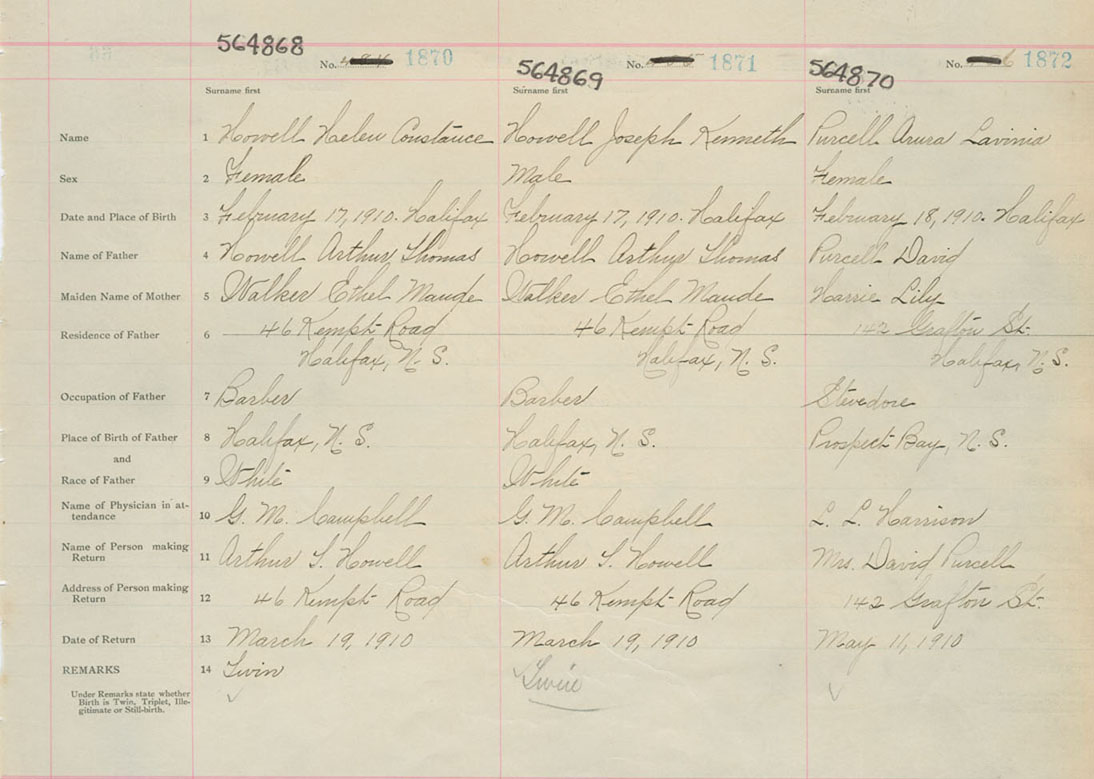 564868 No. 1870
564869 No. 1871
564870 No. 1872
Surname first Surname first Surname first
Name 1 Howell Helen Constance Howell Joseph Kenneth Purcell Arura Lavinia
Sex 2 Female Male Female
Date and Place of Birth 3 February 17, 1910. Halifax February 17, 1910. Halifax February 18, 1910. Halifax
Name of Father 4 Howell Arthur Thomas Howell Arthur Thomas Purcell David
Maiden Name of Mother 5 Walker Ethel Maude Walker Ethel Maude Harrie Lily
Residence of Father 6 46 Kempt Road 46 Kempt Road 142 Grafton St.
Halifax, N. S. Halifax, N. S. Halifax, N. S.
Occupation of Father 7 Barber Barber Stevedore
Place of Birth of Father 8 Halifax, N. S. Halifax, N. S. Prospect Bay, N. S.
and
Race of Father 9 White White
Name of Physician in at-
tendance 10 G. M. Campbell G. M. Campbell L. L. Harrison
Name of Person making
Return 11 Arthur T. Howell Arthur T. Howell Mrs. David Purcell
Address of Person making
Return 12 46 Kempt Road 46 Kempt Road 142 Grafton St.
Date of Return 13 March 19, 1910 March 19, 1910 May 11, 1910
REMARKS 14 Twin Twin
Under Remarks state whether
Birth is Twin, Triplet, Ille-
gitimate or Still-birth.